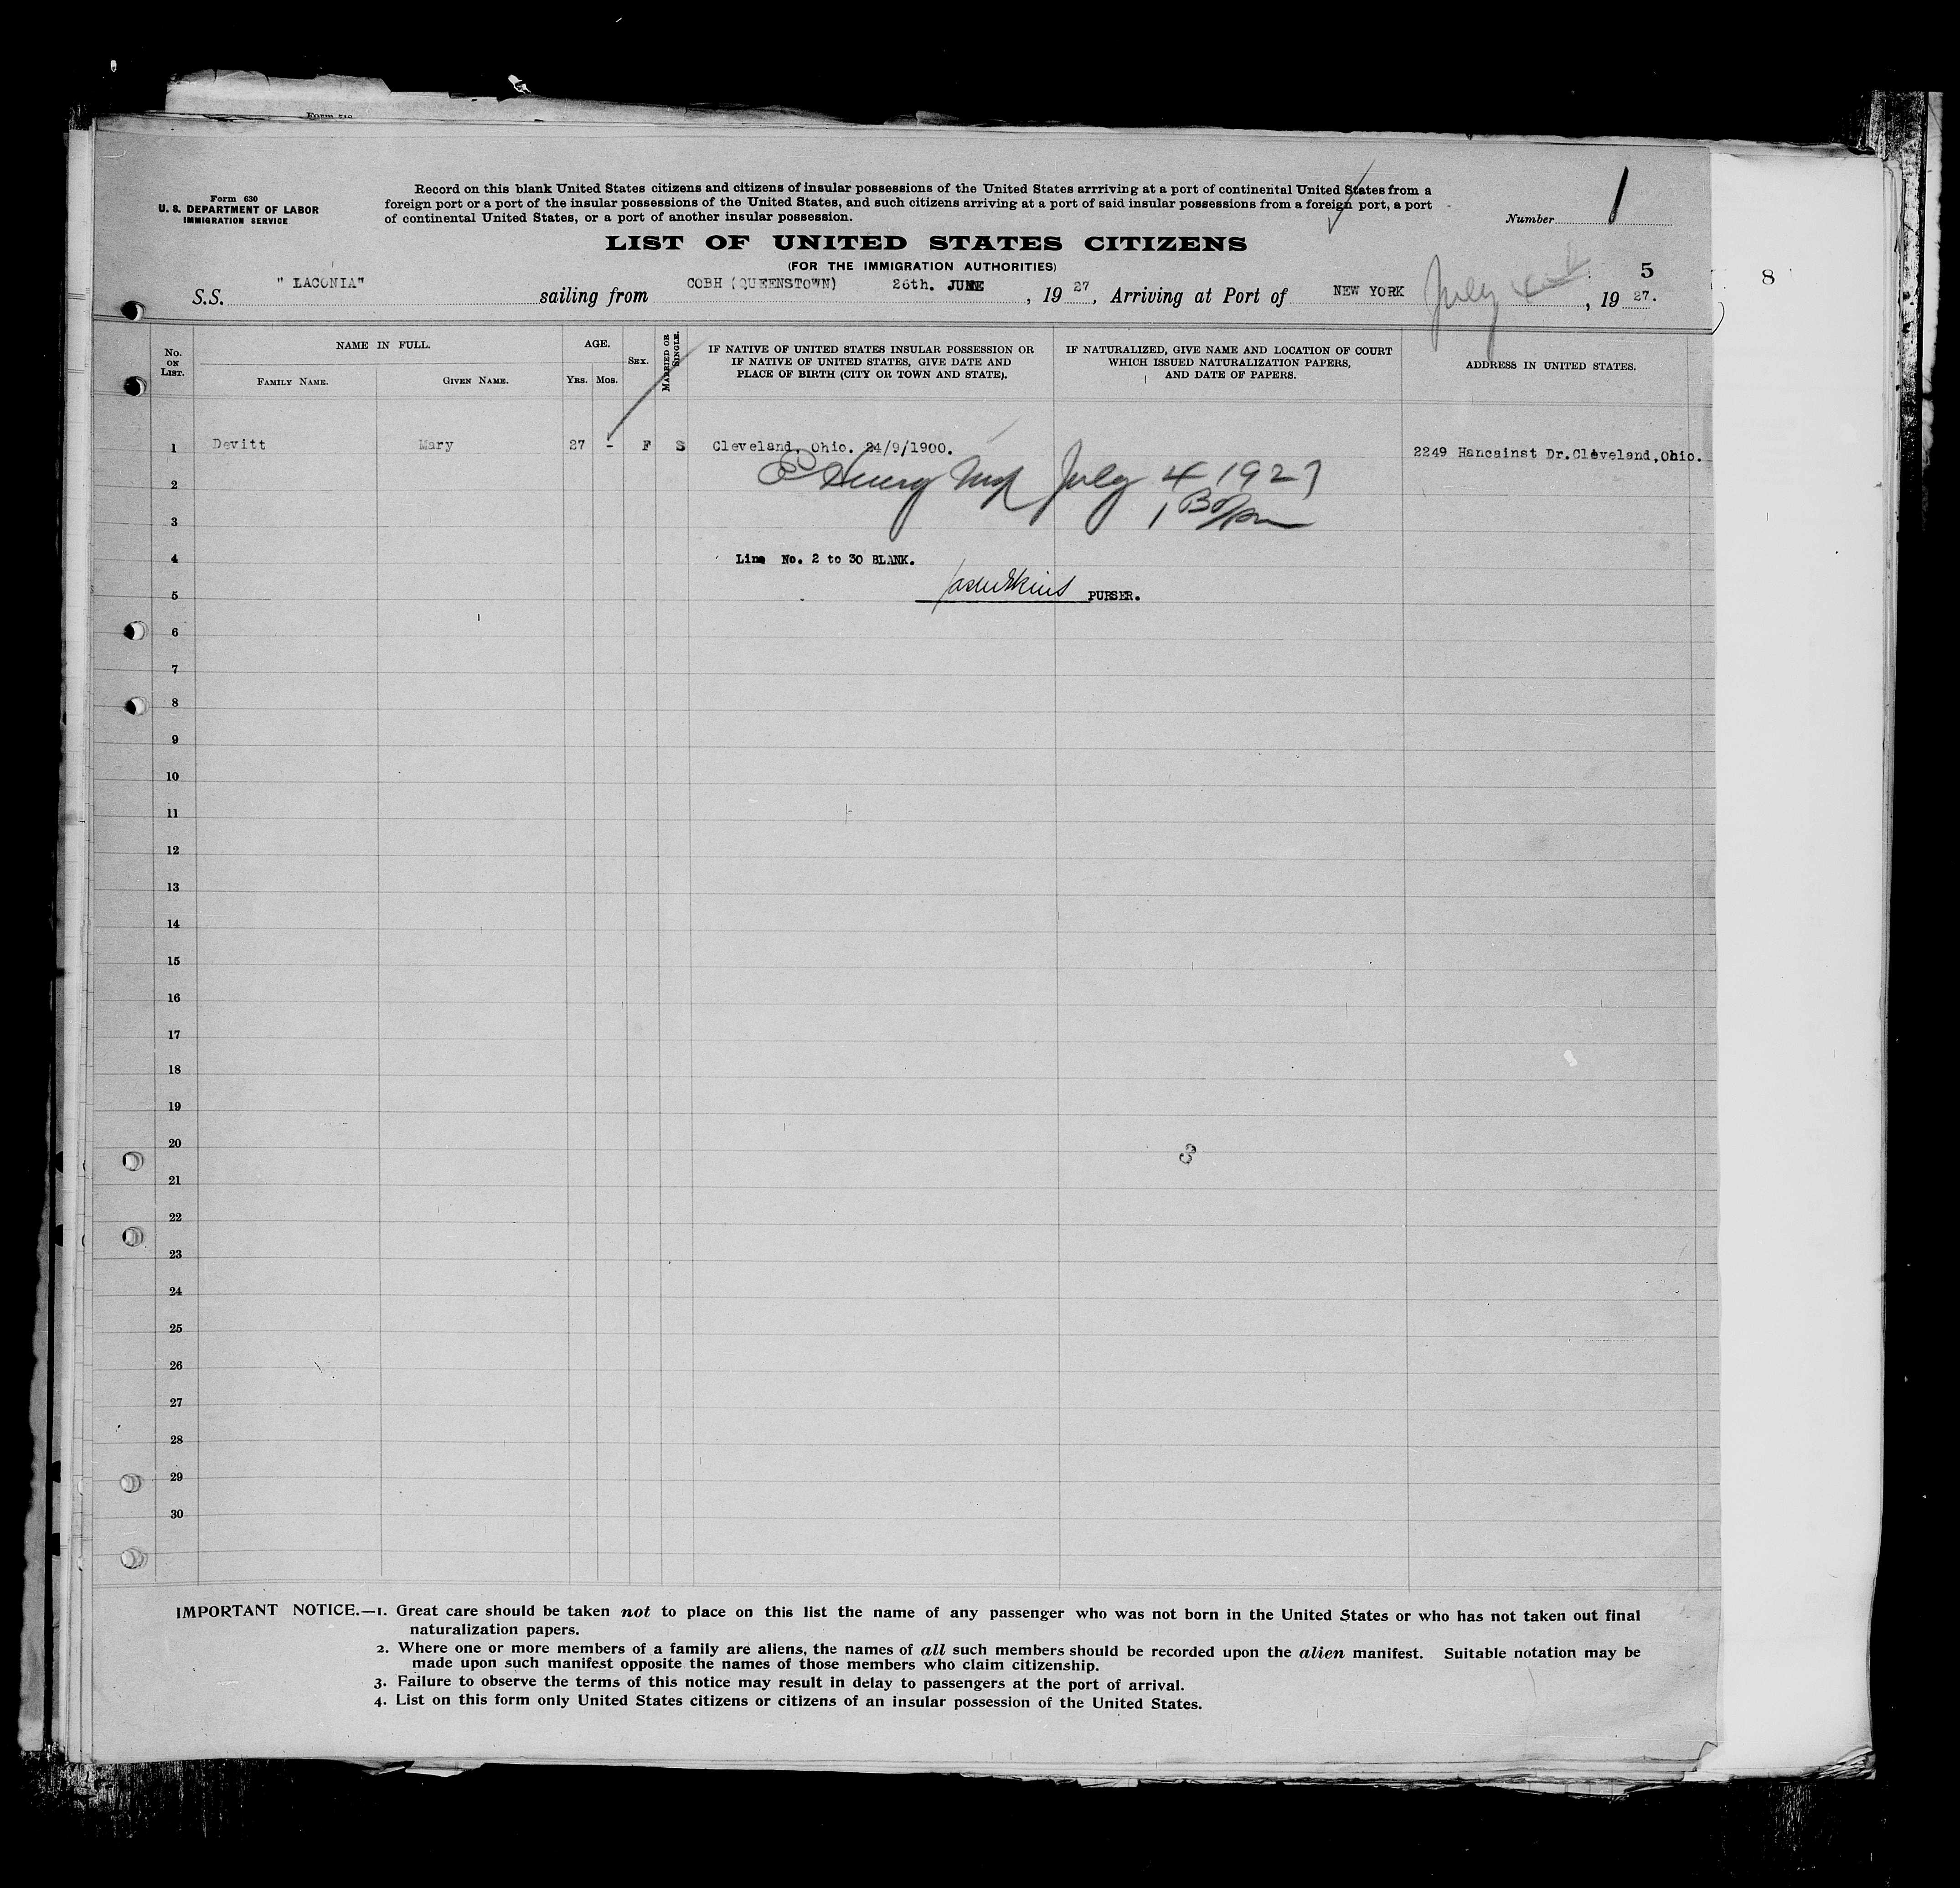 Form 630
U. S. DEPARTMENT OF LABOR
IMMIGRATION SERVICE
Record on this blank United States citizens and citizens of insular possessions of the United States arrriving at a port of continental United States from a
foreign port or a port of the insular possessions of the United States, and such citizens arriving at a port of said insular possessions from a foreign port, a port
of continental United States, or a port of another insular possession.
Number 1
LIST OF UNITED STATES CITIZENS
(FOR THE IMMIGRATION AUTHORITIES)
5
8
S.S. "LACONIA" sailing from COBH (QUEENSTOWN) 26th. JUNE, 1927, Arriving at Port of NEW YORK July 4th, 1927.
No. ON LIST.
NAME IN FULL.
FAMILY NAME.
GIVEN NAME.
AGE.
YRS. MOS.
SEX.
MARRIED OR SINGLE.
IF NATIVE OF UNITED STATES INSULAR POSSESSION OR
IF NATIVE OF UNITED STATES, GIVE DATE AND
PLACE OF BIRTH (CITY OR TOWN AND STATE).
IF NATURALIZED, GIVE NAME AND LOCATION OF COURT
WHICH ISSUED NATURALIZATION PAPERS,
AND DATE OF PAPERS.
ADDRESS IN UNITED STATES.
1 Devitt Mary 27 - F S Cleveland, Ohio. 24/9/1900. 2249 Hancainst Dr.Cleveland,Ohio.
2 July 4 1927
3 1 30 pm
4 Line No. 2 to 30 BLANK.
5 PURSER.
6
7
8
9
10
11
12
13
14
15
16
17
18
19
20
3
21
22
23
24
25
26
27
28
29
30
IMPORTANT NOTICE.—1. Great care should be taken not to place on this list the name of any passenger who was not born in the United States or who has not taken out final
naturalization papers.
2. Where one or more members of a family are aliens, the names of all such members should be recorded upon the alien manifest. Suitable notation may be
made upon such manifest opposite the names of those members who claim citizenship.
3. Failure to observe the terms of this notice may result in delay to passengers at the port of arrival.
4. List on this form only United States citizens or citizens of an insular possession of the United States.